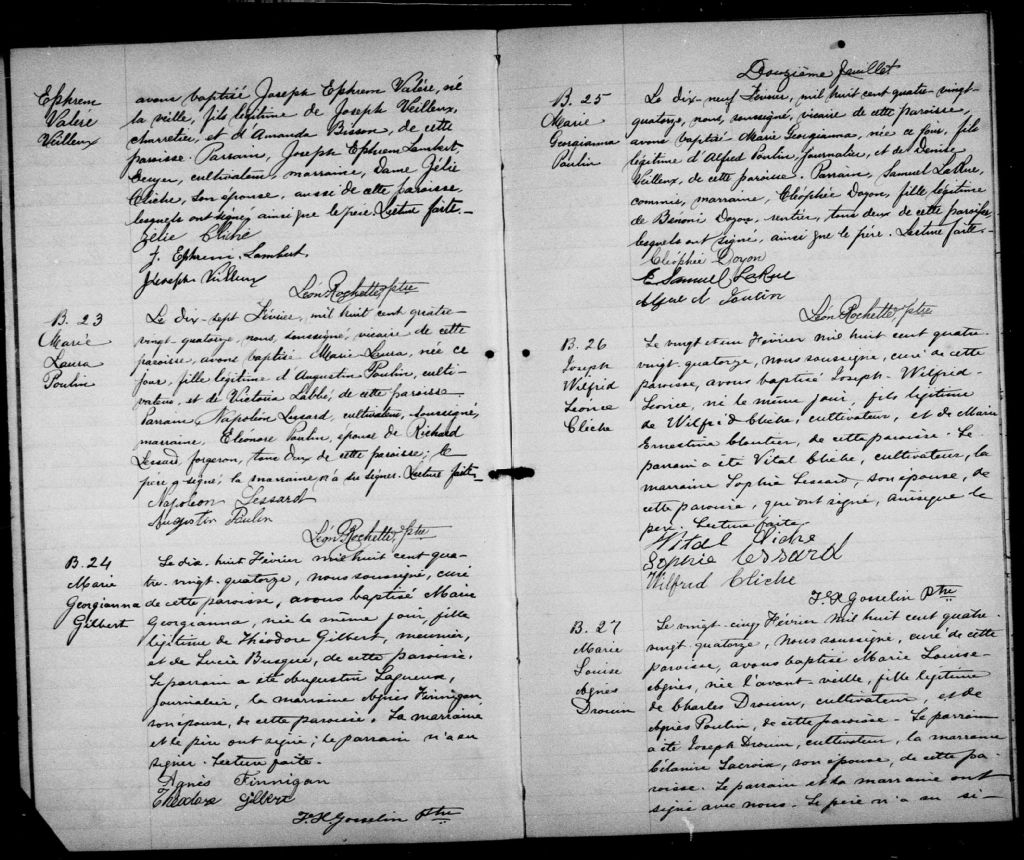 Ephrem
Valére
Veilleux
avons baptisé Joseph Ephrem Valére, né
la veille, fils légitime de Joseph Veilleux,
charretier, et d'Amanda Bisson, de cette
paroisse. Parrain, Joseph Ephrem Lambert
cultivateur, marraine, Dame Zélie
Cliche, son épouse, aussi de cette paroisse
lesquels ont signé, ainsi que le père. Lecture faite.
Zélie Cliche
J. Ephrem Lambert
Joseph Veilleux
Léon Rochette, Ptre
B. 23
Marie
Laura
Poulin
Le dix-sept Février, mil huit cent quatre-
vingt-quatorze, nous, soussigné, vicaire de cette
paroisse, avons baptisé Marie Laura, née ce
jour, fille légitime d'Augustin Poulin, culti-
vateur, et de Victoria Labbé, de cette paroisse
Parrain, Napoléon Lessard, cultivateur, soussigné,
marraine, Eléonore Poulin, épouse de Richard
Lessard, forgeron, tous deux de cette paroisse; le
père a signé; la marraine n'a su signer. Lecture faite.
Napoleon Lessard
Augustin Poulin
Léon Rochette, Ptre
B. 24
Marie
Georgianna
Gilbert
Le dix-huit Février mil huit cent qua-
tre-vingt-quatorze, nous soussigné, curé
de cette paroisse, avons baptisé Marie
Georgianna, née le même jour, fille
légitime de Théodore Gilbert, meunier,
et de Lucie Busque, de cette paroisse.
Le parrain a été Augustin Lagueux,
journalier, la marraine Agnès Finnigan,
son épouse, de cette paroisse. La marraine
et le père ont signé; le parrain n'a su
signer. Lecture faite.
Agnès Finnigan
Théodore Gilbert
F. X. Gosselin Ptre
Douzième feuillet
B. 25
Marie
Georgianna
Poulin
Le dix-neuf Février, mil huit cent quatre-vingt-
quatorze, nous, soussigné, vicaire de cette paroisse,
avons baptisé Marie Georgianna, née ce jour, fils
légitime d'Alfred Poulin, journalier, et de Denise
Veilleux, de cette paroisse. Parrain, Samuel LaRue,
commis, marraine, Cléophée Doyon, fille légitime
de Bénoni Doyon, rentier, tous deux de cette paroisse
lesquels ont signé, ainsi que le père. Lecture faite.
Cléophée Doyon
E Samuel LaRue
Alfred Poulin
Léon Rochette, Ptre
B. 26
Joseph
Wilfrid
Leonce
Cliche
Le vingt et un Février mil huit cent quatre-
vingt-quatorze, nous soussigné, curé de cette
paroisse, avons baptisé Joseph-Wilfrid-
Leonce, né le même jour, fils légitime
de Wilfrid Cliche, cultivateur, et de Marie
Ernestine Cloutier, de cette paroisse. Le
parrain a été Vital Cliche, cultivateur, la
marraine Sophie Lessard, son épouse, de
cette paroisse, qui ont signé, ainsi que le
père. Lecture faite.
Vital Cliche
Sophie Lessard
Wilfrid Cliche
F. X Gosselin Ptre
B. 27
Marie
Louise
Agnès
Drouin
Le vingt-cinq Février mil huit cent quatre-
vingt-quatorze, nous soussigné, curé de cette
paroisse, avons baptisé Marie Louise-
Agnès, née l'avant-veille, fille légitime
de Charles Drouin, cultivateur, et de
Agnès Poulin, de cette paroisse. Le parrain
a été Joseph Drouin, cultivateur, la marraine
Célanire Lacroix, son épouse, de cette pa-
roisse. Le parrain et la marraine ont
signé avec nous. Le père n'a su si-